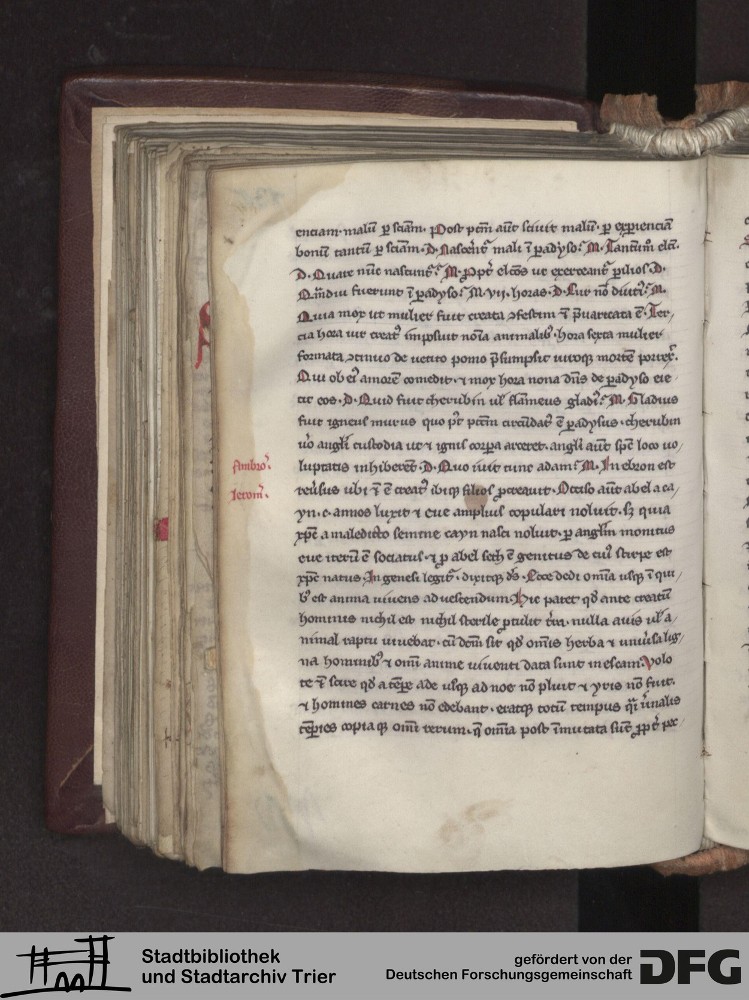 enciam malū ꝑ sciam. Post pctm̄ aūt sciuit malū ꝑ exꝑienciā
bonū tantū ꝑ sciam. D. Nascent᷒ mali ī ꝑadyso. M. Tantūm elc̄i.
D. Quare nūc nascunt᷒. M. Ꝓpt᷒ elc̄os ut exerceant᷒ ꝑ illos. D.
Qm̄diu fuerunt ī ꝑadyso. M. vii. horas. D. Cur nō diuci᷒. M.
Quia mox ut mulier fuit creata ꝯfestim ⁊ p̄uaricata ē. Ter/
cia hora uir creat᷒ imposuit nōīa animalib᷒. hora sexta mulier
formata ꝯtinuo de uetito pomo p̄sumpsit uiroqꝫ mortē porrex᷒.
Qui ob ei᷒ amorē comedit. ⁊ mox hora nona dn̄s de ꝑadyso eie
cit eos. D. Quid fuit cherubin ul᷒ flam̄eus gladi᷒. M. Gladius
fuit igneus murus quo p᷒t pctm̄ circūdat᷒ ē ꝑadysus. cherubin
u᷒o angl̄i custodia ut ⁊ ignis corꝑa arceret. angl̄i aūt sp̄c loco uo/
Ambro᷒.
luptatis inhiberēt. D. Quo iuit tunc adam. M. In ebron est
Ieroīn.
reu᷒sus ubi ⁊ ē creat᷒ ibiqꝫ filios ꝓcreauit. Occiso aūt abel a ca/
yn. c. annos luxit ⁊ eue amplius copulari noluit. sꝫ quia
xp̄c a maledicto semine cayn nasci noluit. ꝑ angl̄m monitus
eue iterū ē sociatus. ⁊ ꝓ abel seth ē genitus de cui᷒ stirpe est
xp̄c natus. In genesi legit᷒. dixitqꝫ ds̄. Ecce dedi omīa usqꝫ ī qui/
b᷒ est anima uiuens ad uescendum. Hic patet qd̄ ante creatū
hominis nichil est nichil sterile ꝓtulit t᷒ra. nulla auis ul᷒ a/
nimal raptu uiuebat. cū dom̄ sit qd̄ om̄is herba ⁊ uniu᷒sa lig/
na hominib᷒ ⁊ omī anime uiuenti data sunt in escam. Volo
te ⁊ scire qd̄ a tēꝑe ade usqꝫ ad noe nō pluit ⁊ yris nō fuit.
⁊ homines carnes nō edebant. eratqꝫ totū tempus q̄i u᷒nalis
tēꝑies copia qꝫ omī rerum. q̄ omīa post īmutata sūt ꝓpt᷒ pec/
Stadtbibliothek
und Stadtarchiv Trier
gefördert von der
Deutschen Forschungsgemeinschaft
DFG